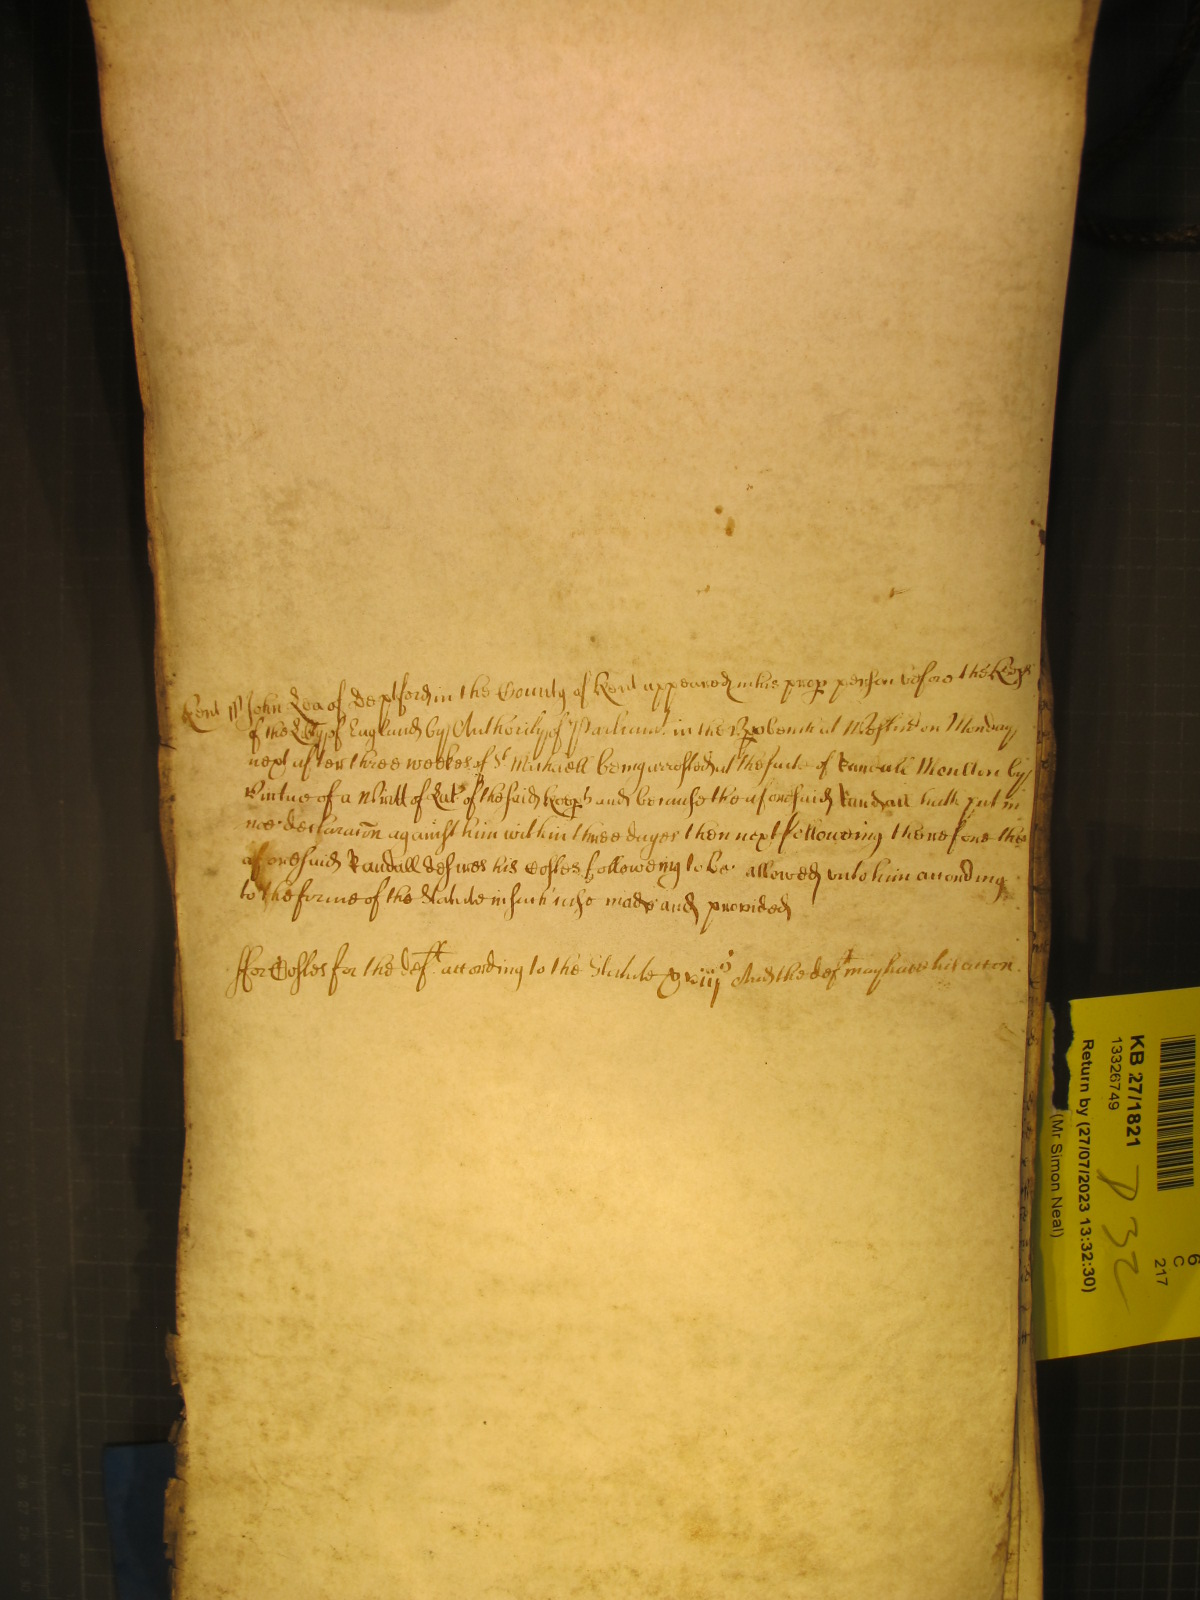 Kent ss John Lea of Deptford in the County of Kent appeared in his prop person before the Keeps
of the Lib̃ty of England by Authority of Parliamt. in the Upp bench at Westm̃ on Monday
next after three weekes of St Michaell being arrested at the suite of Randall Moulton by
Virtue of a Writt of Lat. of the said Keeps and because the aforesaid Randall hath put in
noe declaracõn against him within three dayes then next following therefore the
aforesaid Randall desires his Costes following to be allowed unto him according
to the forme of the Statute in such case made and provided
ffor Costes for the deft. according to the Statute xviijs And the deft may have his eccon.
KB 27/1821
13326749
Return by (27/07/2023 13:32:30)
(Mr Simon Neal)
6
C
217
D 32